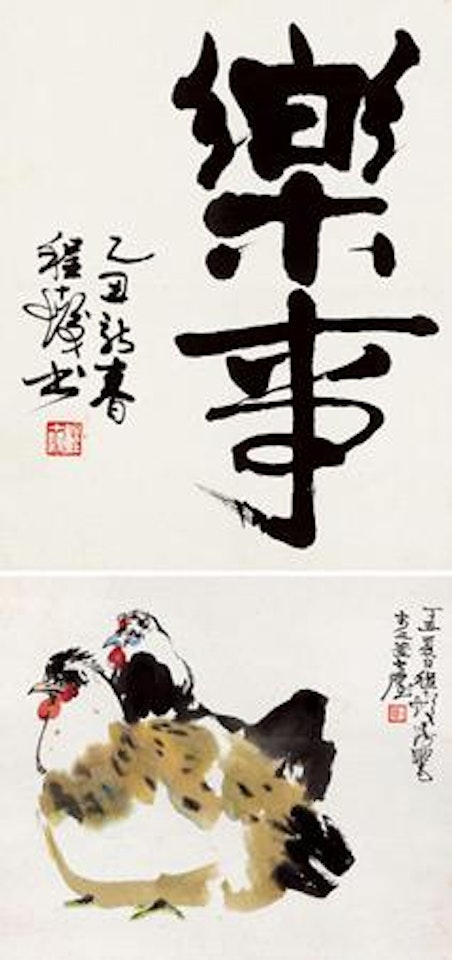 樂事
乙丑新春
程十髮書
丁丑夏日程十髮